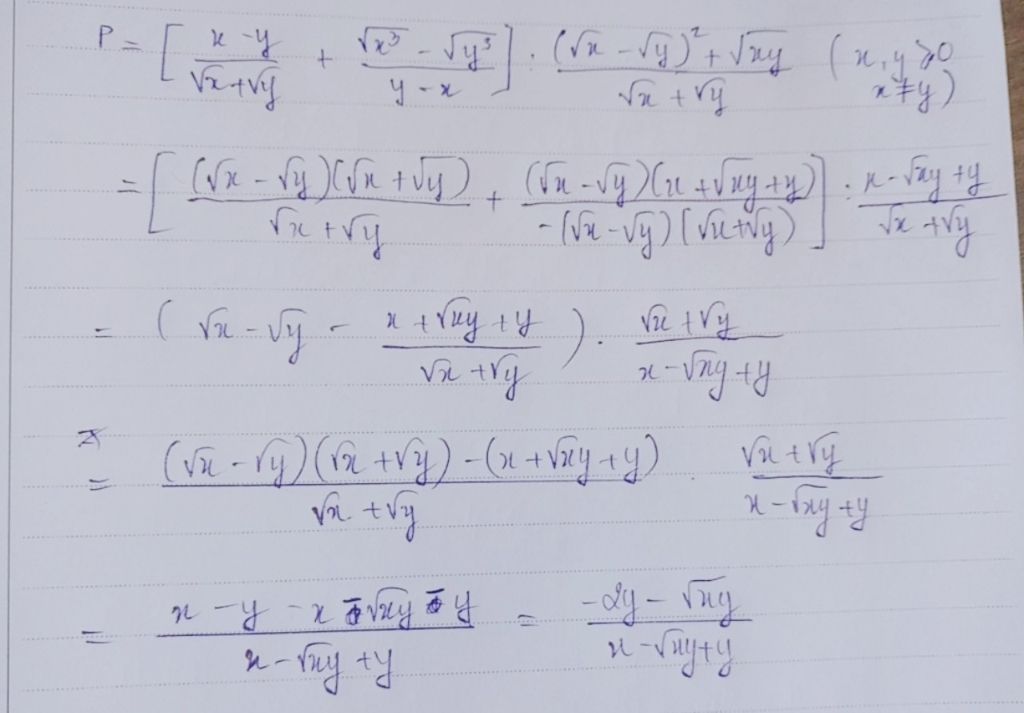 P = [ (x - y)/(√x + √y) + (√x³ - √y³)/(y - x) ] : ((√x - √y)² + √xy)/(√x + √y) (x, y ≥ 0 x ≠ y)
= [ ((√x - √y)(√x + √y))/(√x + √y) + ((√x - √y)(x + √xy + y))/(-(√x - √y)(√x + √y)) ] : (x - √xy + y)/(√x + √y)
= ( √x - √y - (x + √xy + y)/(√x + √y) ) . (√x + √y)/(x - √xy + y)
= ((√x - √y)(√x + √y) - (x + √xy + y))/(√x + √y) . (√x + √y)/(x - √xy + y)
= (x - y - x - √xy - y)/(x - √xy + y) = (-2y - √xy)/(x - √xy + y)